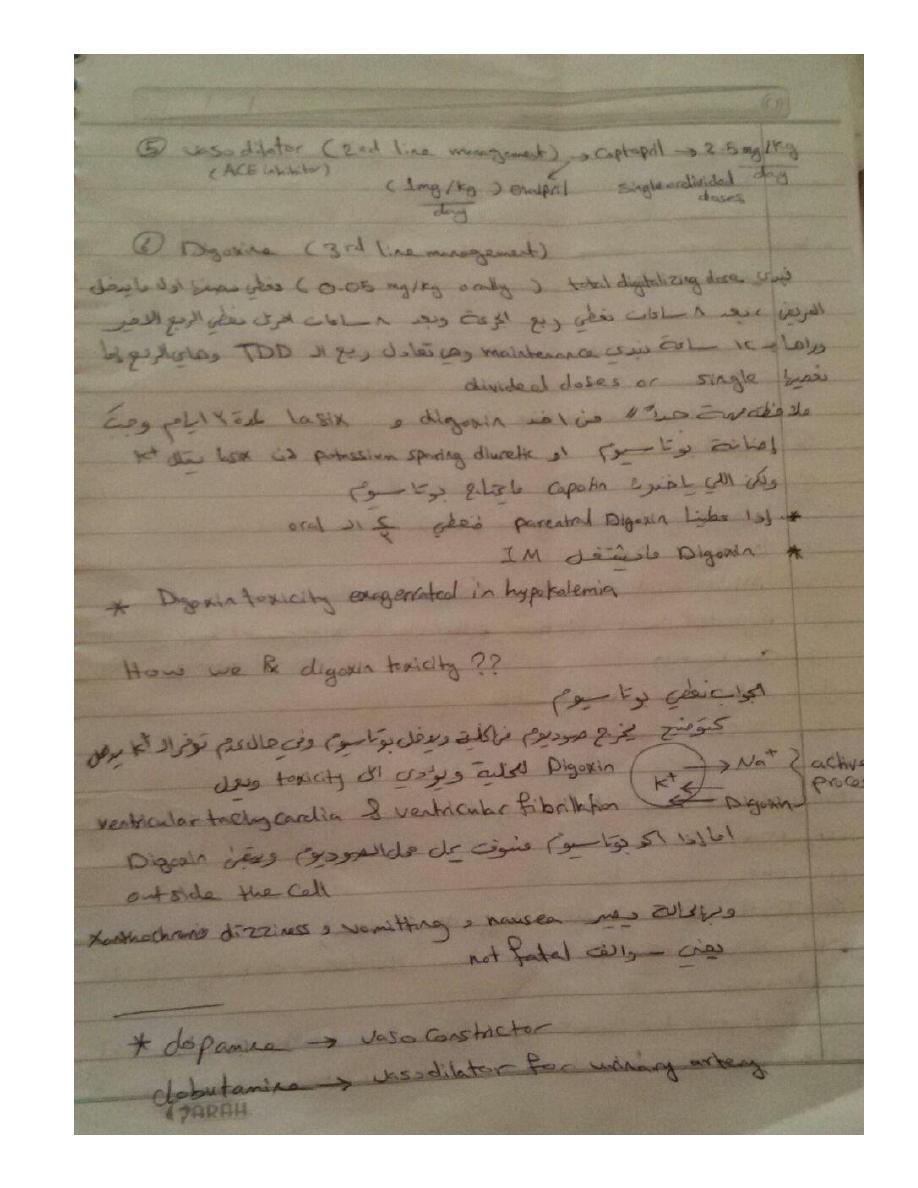 ⑤ vasodilator (2nd line management) → Captopril → 2.5 mg/kg/day
(ACE inhibitor) (1mg/kg/day) enalpril single or divided doses
⑥ Digoxine (3rd line management)
فنبدي total digitalizing dose (0.05 mg/kg orally) فنعطي نصفها اول ما يدخل
المريض وبعد ٨ ساعات نعطي ربع الجرعة وبعد ٨ ساعات اخرى نعطي الربع الاخير
وراها بـ ١٢ ساعة نبدي maintenance وهي تعادل ربع الـ TDD وهاي الربع اما
نعطيها single or divided doses
ملاحظة مهمة جداً // من اخذ digoxin و lasix لمدة ٧ ايام وجب
إضافة بوتاسيوم او potassium sparing diuretic لان lasix يقلل K+
ولكن اللي ياخذون capotin ما يحتاج بوتاسيوم
* إذا عطينا parentral Digoxin فنعطي الـ oral
* Digoxin ما يشتغل IM
* Digoxin toxicity exagerrated in hypokalemia
How we ℞ digoxin toxicity ??
الجواب نعطي بوتاسيوم
كتوضيح يخرج صوديوم من الخلية ويدخل بوتاسيوم وفي حال عدم توفر الـ K+ يدخل
Digoxin للخلية ويؤدي الى toxicity ويعمل
K+ → Na+ Digoxin } active process
ventricular tachycardia & ventricular fibrillation
اما إذا اكو بوتاسيوم فسوف يحل محل الصوديوم ويبقى Digoxin
outside the cell
وبهالحالة يصير nausea و vomitting و dizziness
يعني سوالف not fatal
* dopamine → vasoconstrictor
dobutamine → vasodilator for urinary artery
SARAH